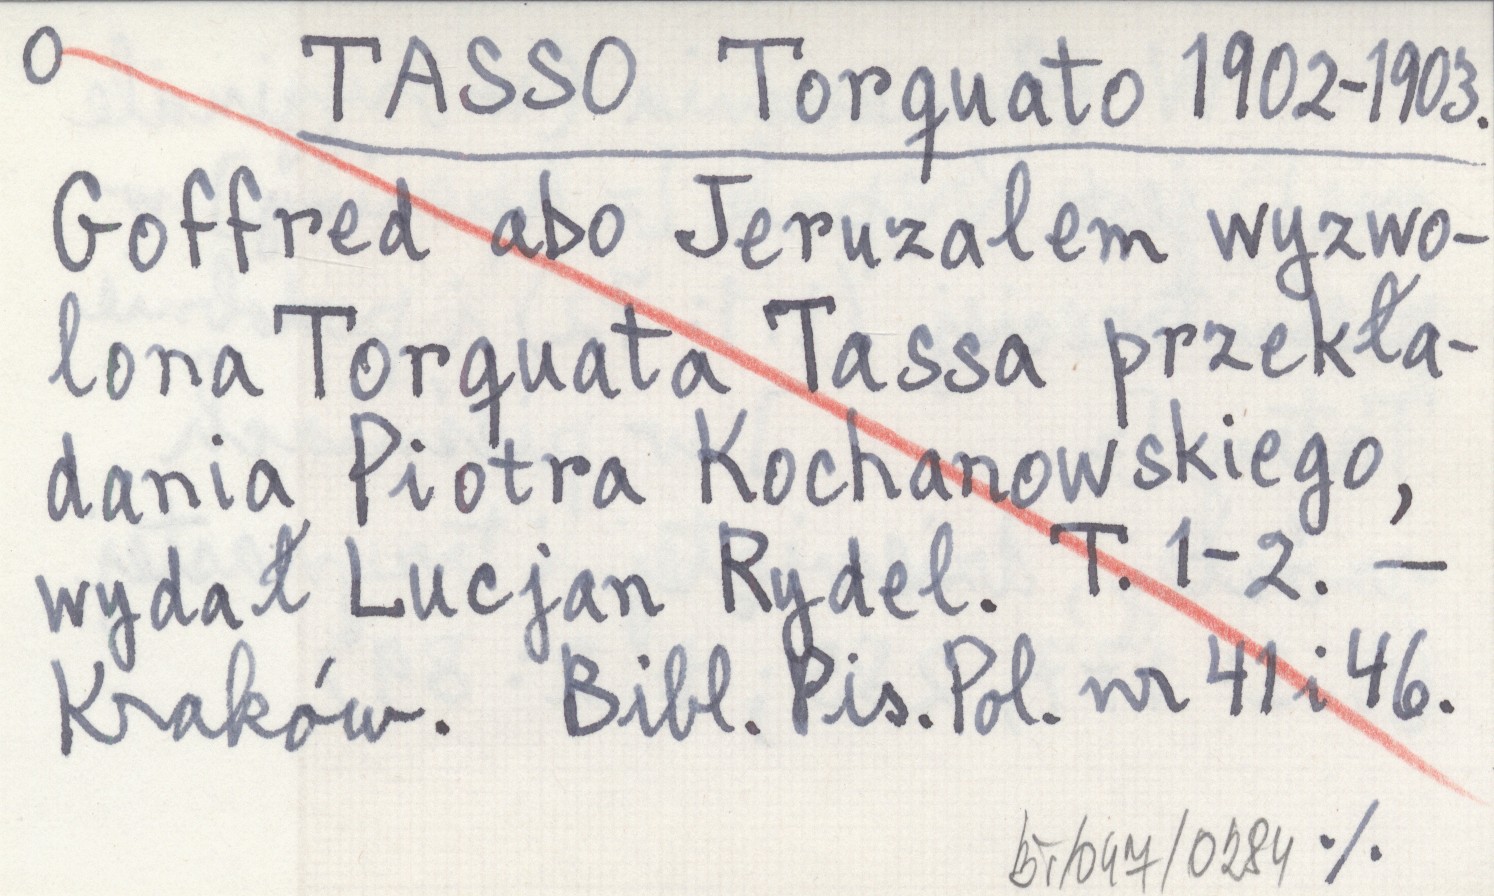 O TASSO Torquato 1902-1903.
Goffred abo Jeruzalem wyzwo-
lona Torquata Tassa przekła-
dania Piotra Kochanowskiego,
wydał Lucjan Rydel. T. 1-2. —
Kraków. Bibl. Pis. Pol. nr 41 i 46.
BT/047/0284 ·/.